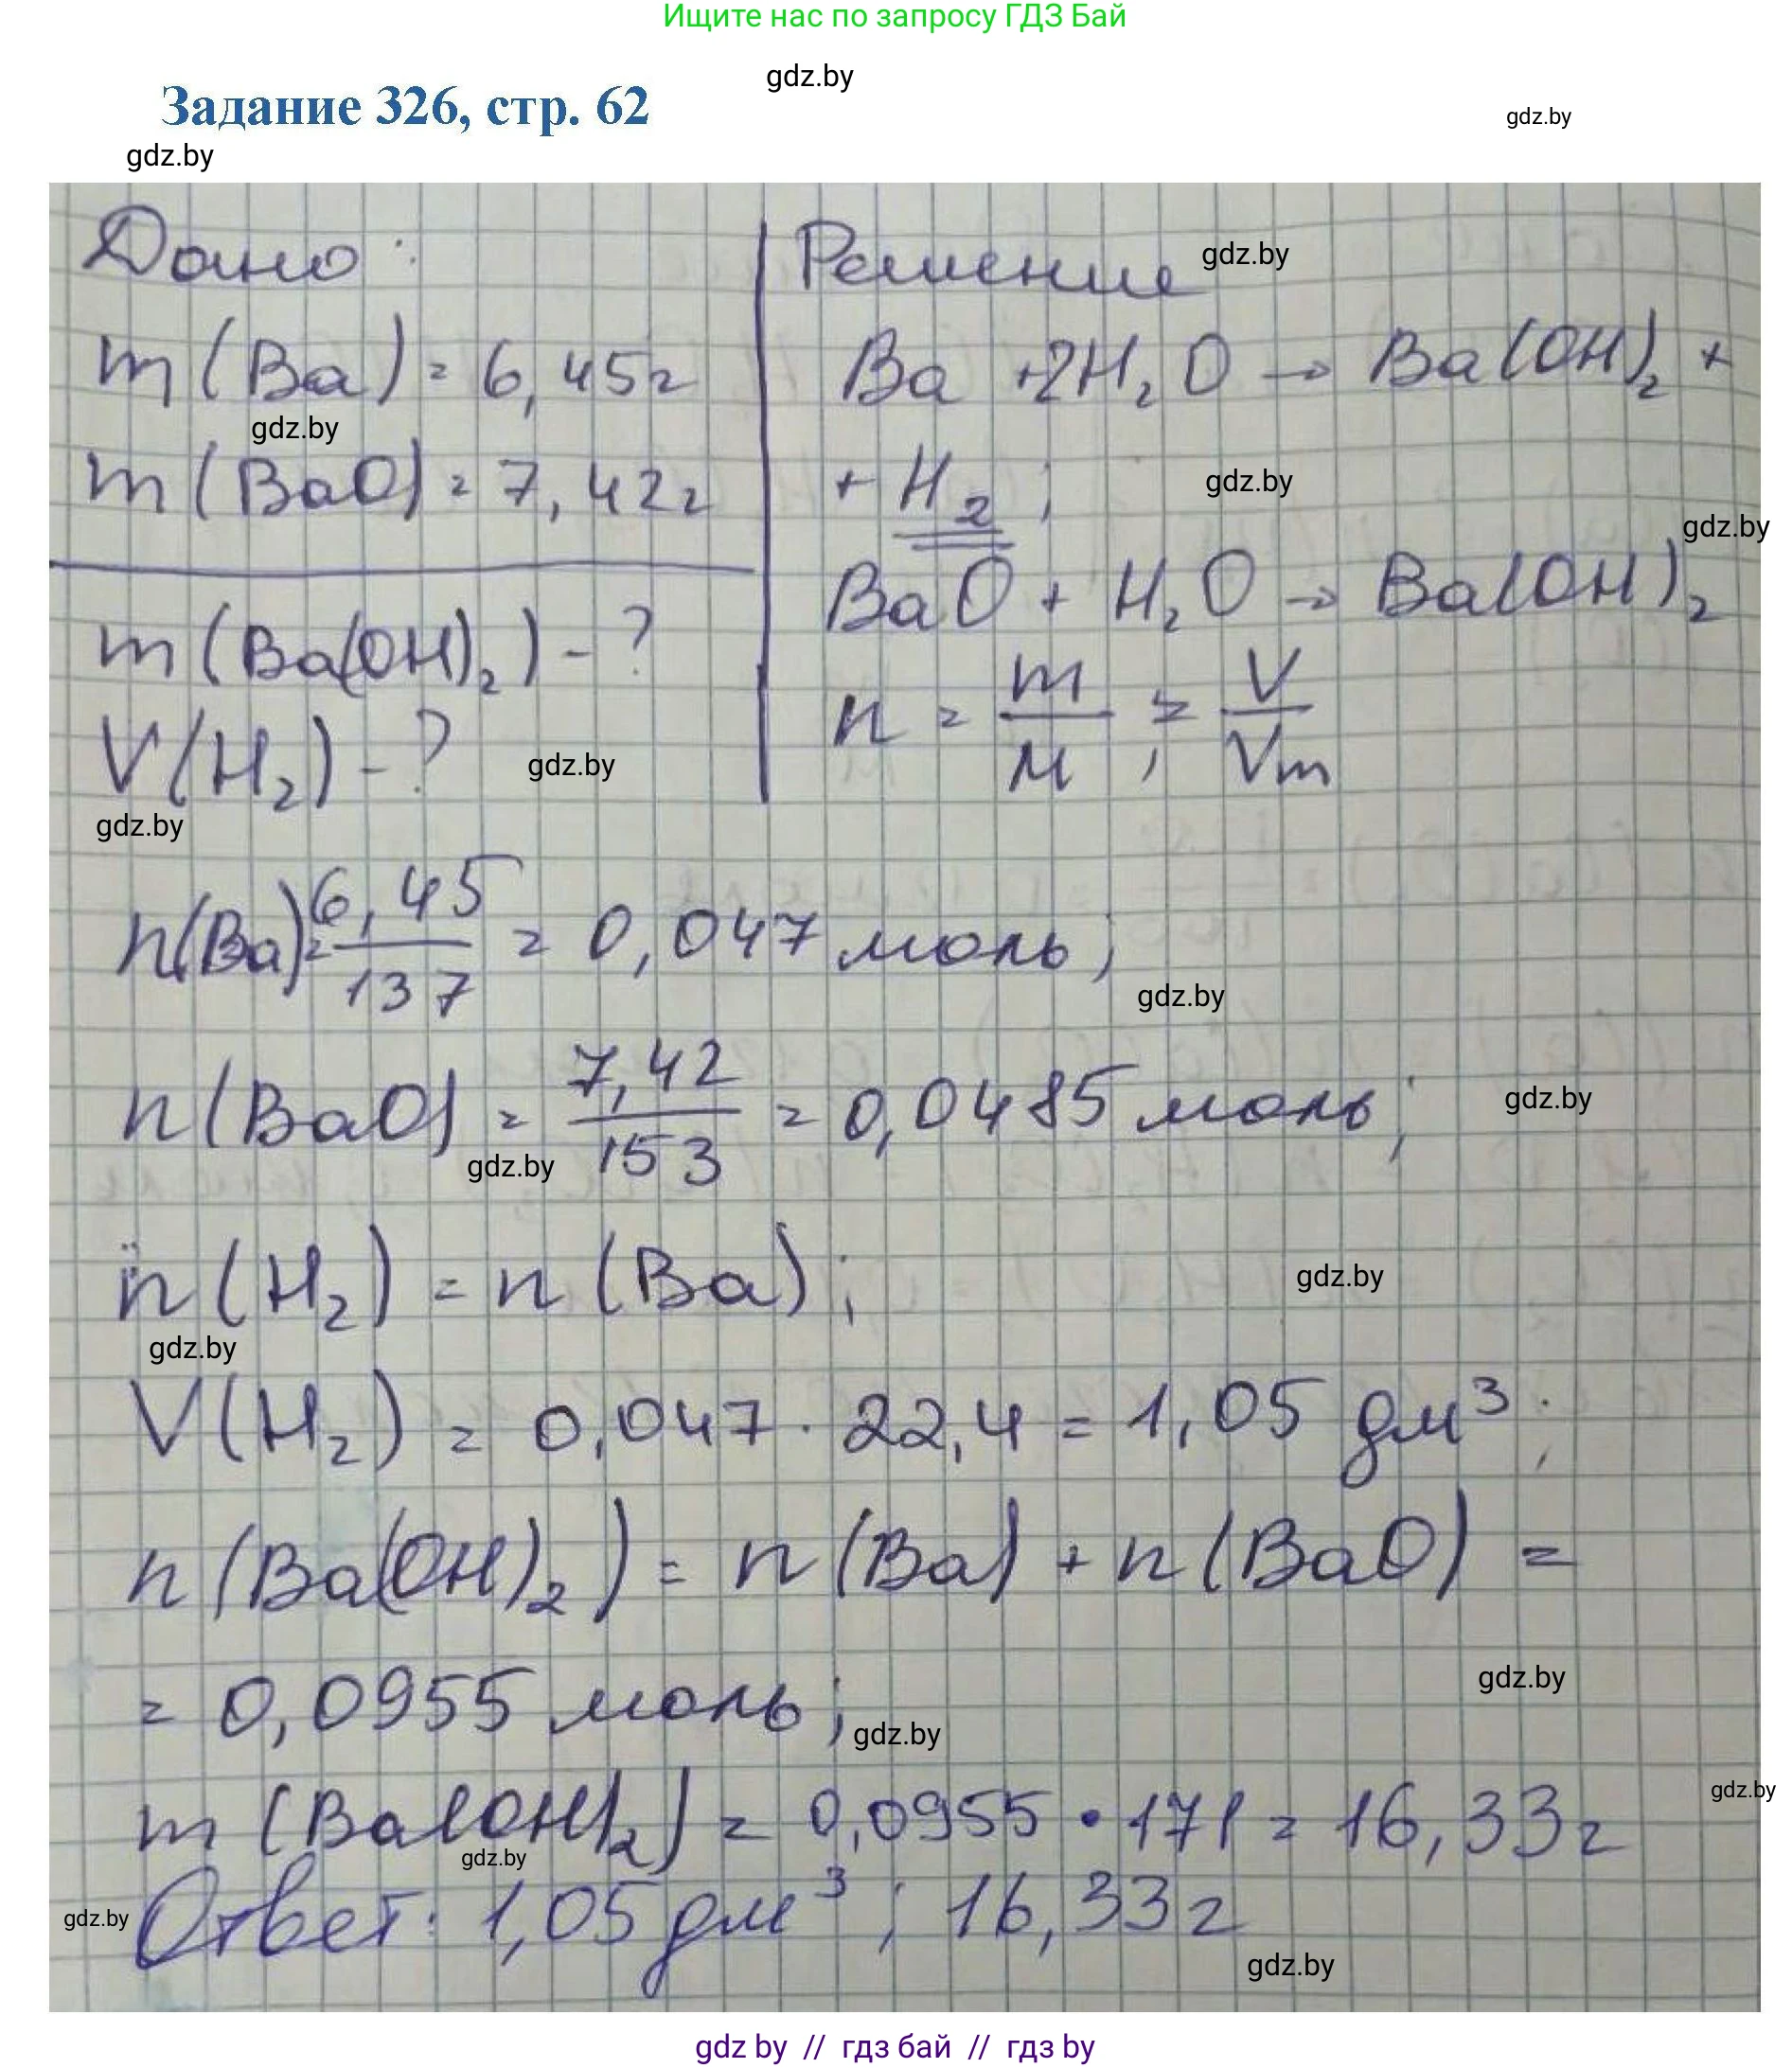 Ищите нас по запросу ГДЗ Бай
gdz.by
Задание 326, стр. 62
gdz.by
gdz.by
Дано:
Решение
gdz.by
m(Ba) = 6,45г
Ba + 2H₂O → Ba(OH)₂ +
gdz.by
m(BaO) = 7,42г
+ H₂;
gdz.by
gdz.by
BaO + H₂O → Ba(OH)₂
m(Ba(OH)₂) - ?
n = m/M ; = V/Vm
V(H₂) - ?
gdz.by
gdz.by
n(Ba) = 6,45/137 = 0,047 моль;
gdz.by
n(BaO) = 7,42/153 = 0,0485 моль;
gdz.by
gdz.by
n(H₂) = n(Ba);
gdz.by
gdz.by
V(H₂) = 0,047 · 22,4 = 1,05 дм³;
n(Ba(OH)₂) = n(Ba) + n(BaO) =
gdz.by
= 0,0955 моль;
gdz.by
gdz.by
m(Ba(OH)₂) = 0,0955 · 171 = 16,33г
gdz.by
gdz.by
Ответ: 1,05 дм³; 16,33г
gdz.by
gdz by // гдз бай // гдз by